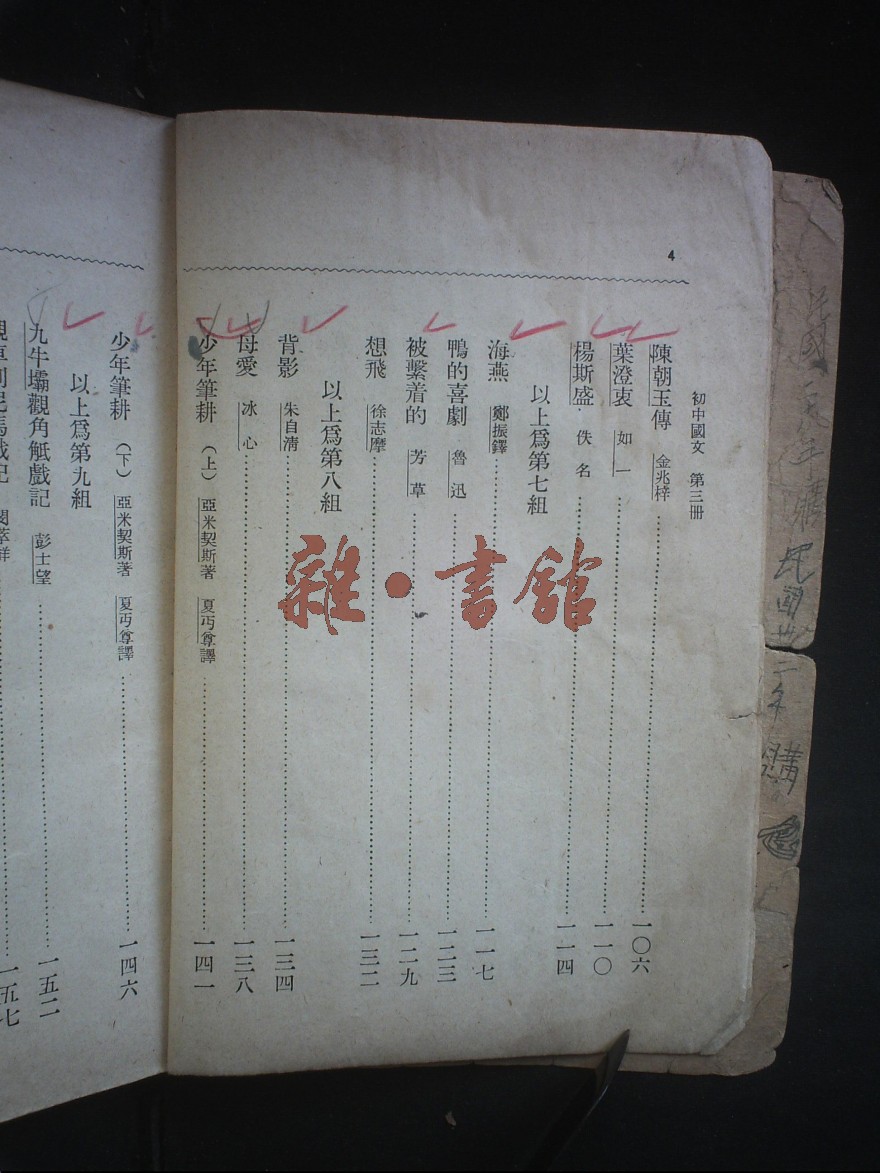 4
初中國文 第三册
陳朝玉傳 金兆梓 一〇六
葉澄衷 如一 一一〇
楊斯盛 佚名 一一四
以上爲第七組
海燕 鄭振鐸 一一七
鴨的喜劇 魯迅 一二三
被繫着的 芳草 一二九
想飛 徐志摩 一三二
以上爲第八組
背影 朱自清 一三四
母愛 冰心 一三八
少年筆耕(上) 亞米契斯著 夏丏尊譯 一四一
少年筆耕(下) 亞米契斯著 夏丏尊譯 一四六
以上爲第九組
九牛壩觀角觝戲記 彭士望 一五二
一五七
雜·書館
民國
年購
民國卅二年購